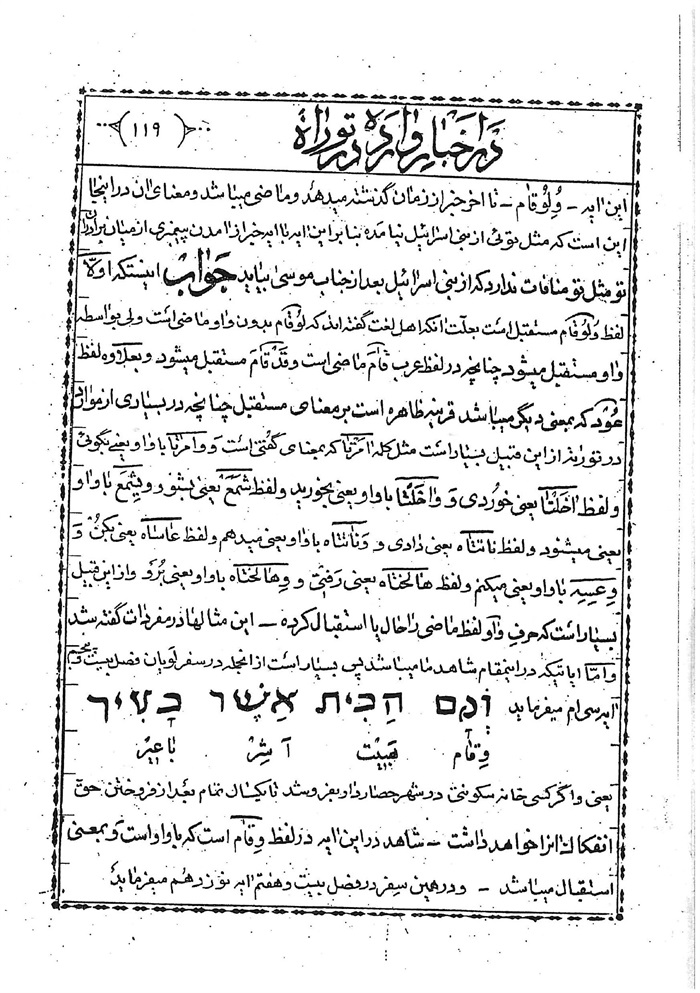 در اخبار وارده در توراة
﴿۱۱۹﴾
این ایه - وَلُو قام - تا اخر خبر از زمان گذشته میدهد و ماضی میباشد و معنای ان در اینجا
این است که مثل توئی از بنی اسرائیل نیامده بنابراین ایه با ایه خبر از امدن پیغمبری از میان برادران
تو مثل تو منافات ندارد که از بنی اسرائیل بعد از جناب موسی بیاید جواب اینستکه اولّا
لفظ وَلُو قام مستقبل است بعلت انکه اهل لغت گفته اند که لُو قام بدون واو ماضی است ولی بواسطه
واو مستقبل میشود چنانچه در لفظ عرب قامَ ماضی است و قَدْ قامَ مستقبل میشود و بعلاوه لفظ
عُوُد که بمعنی دیگر میباشد قرینه ظاهره است بر معنای مستقبل چنانچه در بسیاری از موارد
در توریة از این قبیل بسیار است مثل کله امَرْتا که بمعنای گفتی است و وامَرتا با واو یعنی بگوئی
و لفظ اخَلْتا یعنی خوردی و واخَلْتا با واو یعنی بخورید و لفظ شَمَعْ یعنی بشنو و ویشِمَع با واو
یعنی میشنود و لفظ ناتتاه یعنی دادی و وَناتتاه با واو یعنی میدهم و لفظ عاستاه یعنی بکن و
وِعسِیه با واو یعنی میکنم و لفظ هالختاه یعنی رَفتی و وِهالختاه با واو یعنی برو و از این قبیل
بسیار است که حرف واو لفظ ماضی را حال یا استقبال کرده - این مثالها در مفردات گفته شد
و امّا ایاتیکه در اینمقام شاهد ما میباشد پس بسیار است از انجمله در سفر لویان فصل بیست و پنجم
ایه سی ام میفرماید וקם הבית אשר בעיר
وِقام هَبیْت آشِر باعیْر
یعنی و اگر کسی خانه سکونتی در شهر حصار دار بفروشد تا یکسال تمام بعد از فروختن حق
انفکاك انرا خواهد داشت - شاهد در این ایه در لفظ وِقام است که با واو است و بمعنی
استقبال میباشد - و در همین سفر در فصل بیست و هفتم ایه نوزدهم میفرماید